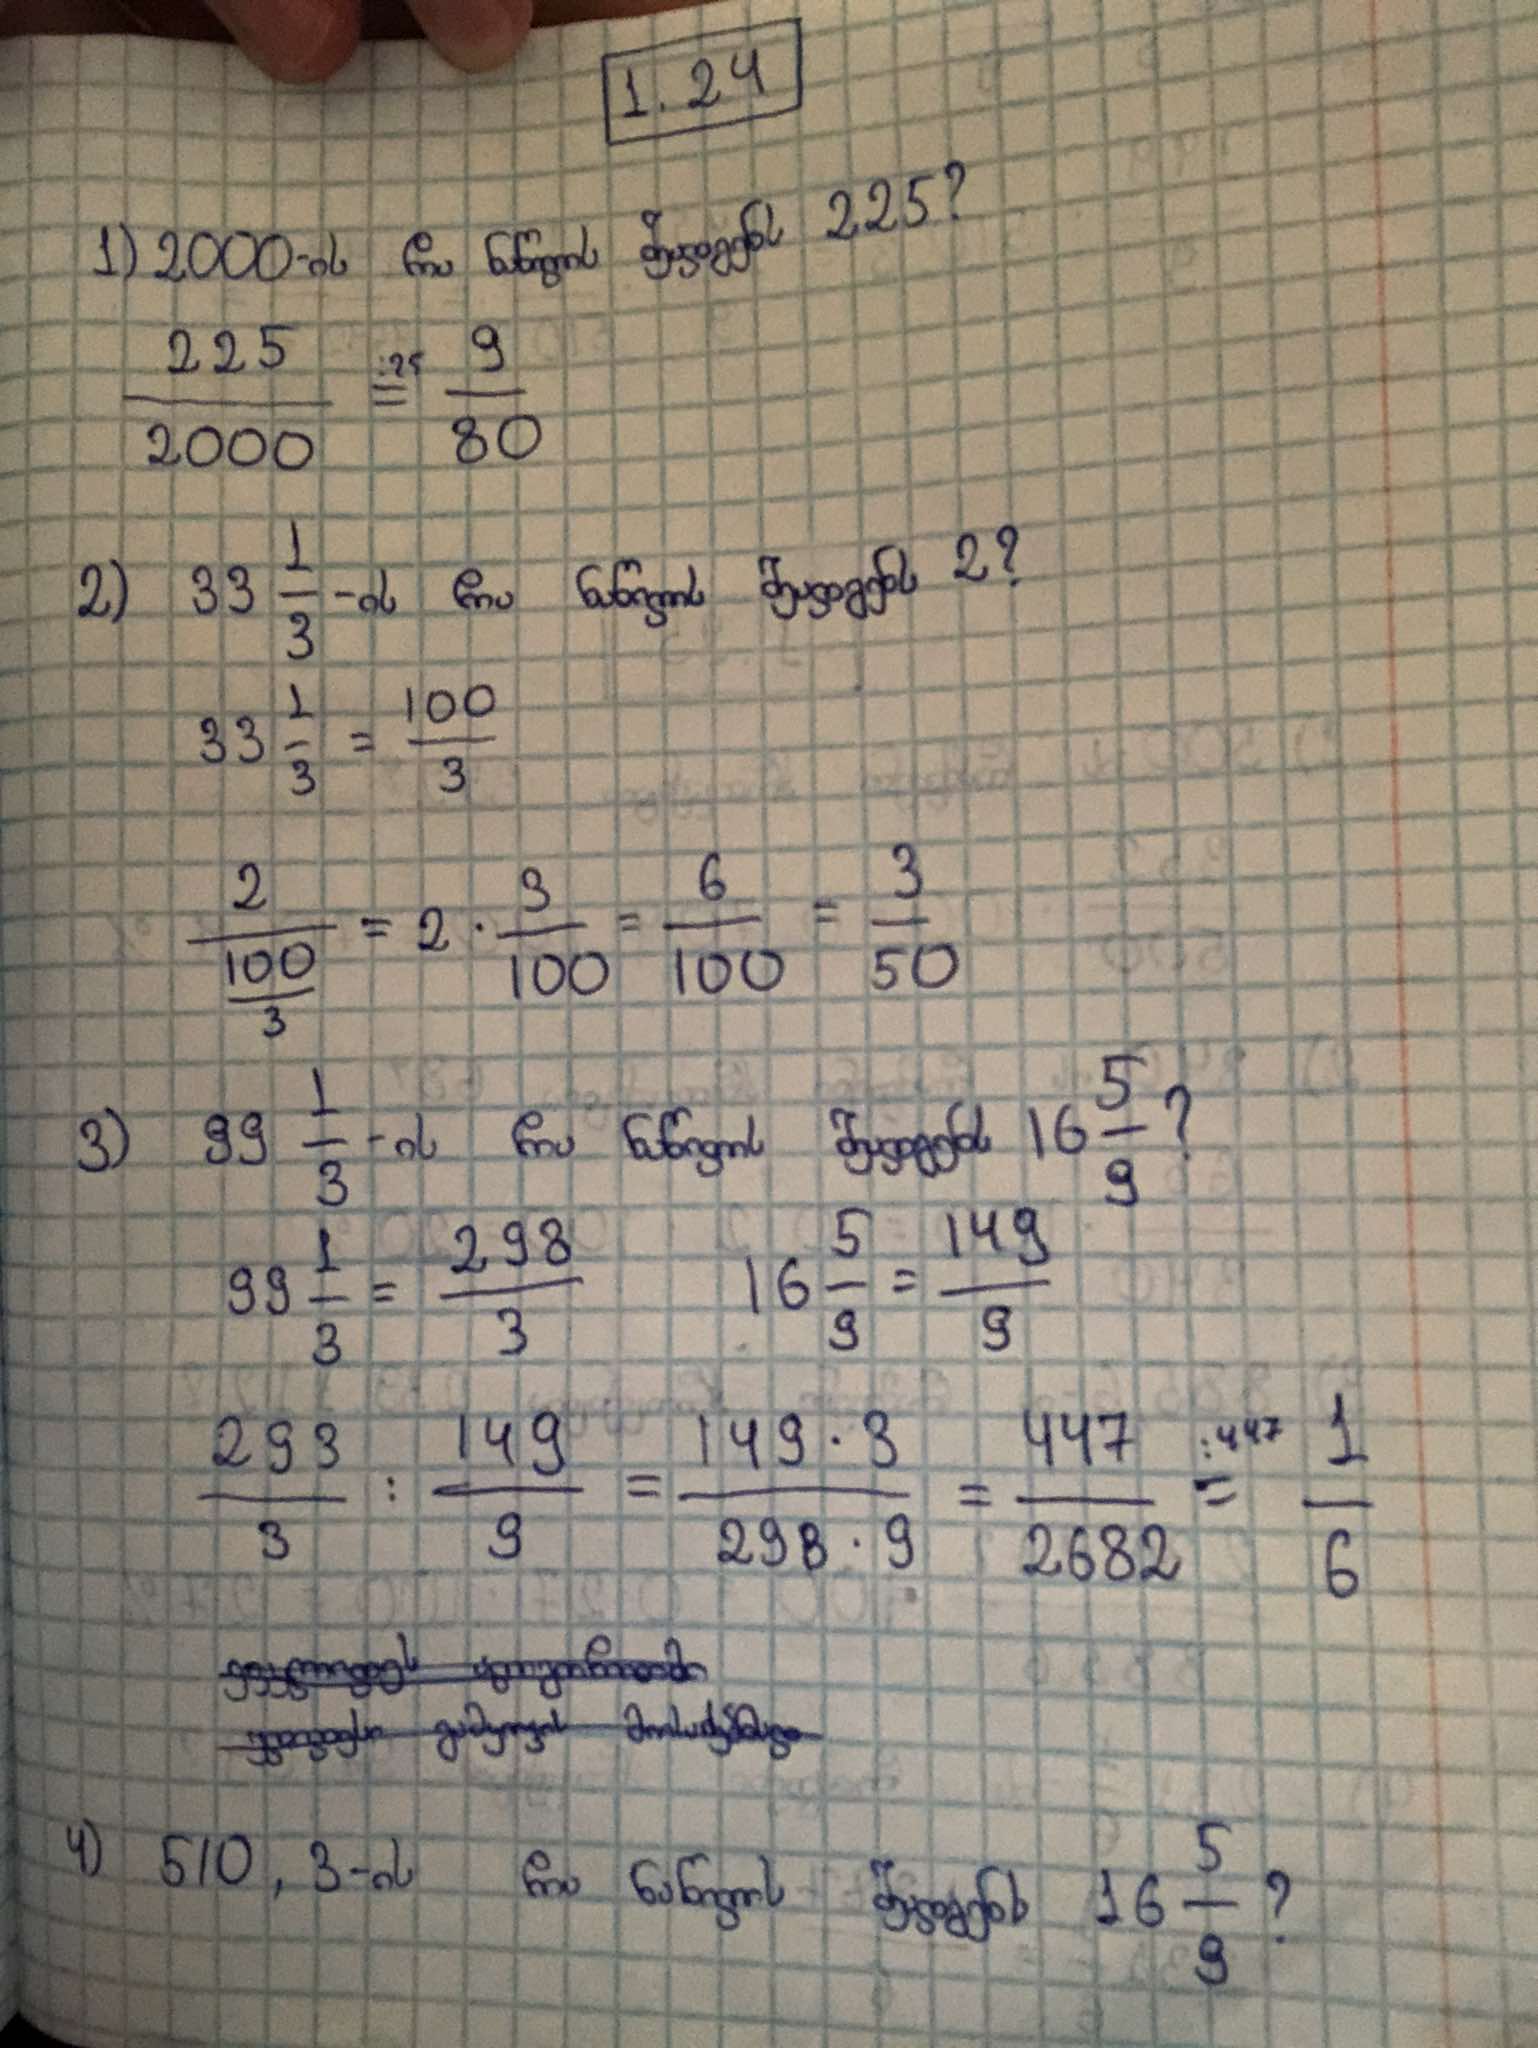 1.24
1) 2000-ის რა ნაწილს შეადგენს 225?
225/2000 =:25 9/80
2) 33 1/3-ის რა ნაწილს შეადგენს 2?
33 1/3 = 100/3
2/(100/3) = 2 · 3/100 = 6/100 = 3/50
3) 99 1/3-ის რა ნაწილს შეადგენს 16 5/9?
99 1/3 = 298/3 16 5/9 = 149/9
298/3 : 149/9 = 149 · 3/298 · 9 = 447/2682 =:447 1/6
4) 510,3-ის რა ნაწილს შეადგენს 16 5/9?